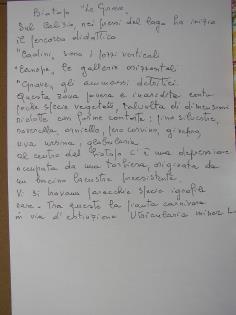 Biotopo "Le Grave"
Sul Colsio, nei pressi del lago ha inizio
il percorso didattico
"Canopi", le gallerie orizzontali.
"Grave", gli ammassi detritici.
Questa zona povera e inaridita conta
poche specie vegetali, talvolta di dimensioni
ridotte con forme contorte: pino silvestre,
roverella, orniello, pero corvino, ginepro,
uva ursina, globularia.
al centro del biotopo c'è una depressione
occupata da una torbiera, originata da
un bacino lacustre preesistente.
Vi si trovano parecchie specie igrofile
rare. Tra queste la pianta carnivora
in via di estinzione Utricularia minor L